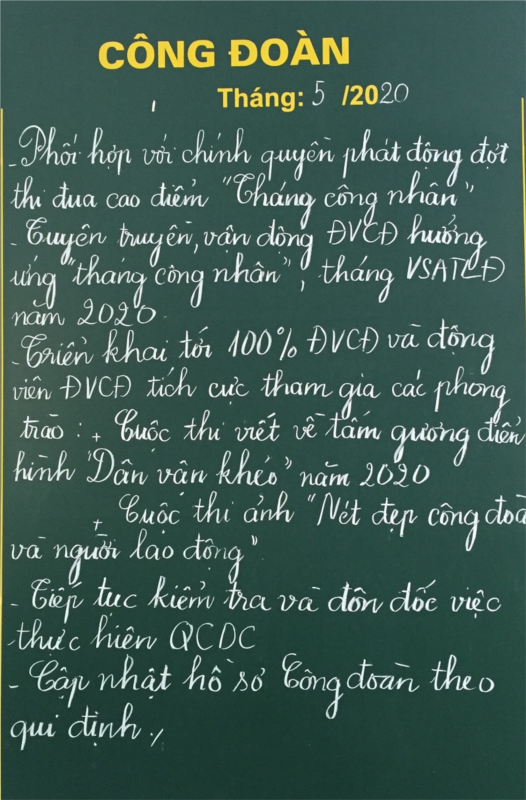 CÔNG ĐOÀN
Tháng: 5 /2020
- Phối hợp với chính quyền phát động đợt
thi đua cao điểm "Tháng công nhân"
- Tuyên truyền, vận động ĐVCĐ hưởng
ứng "tháng công nhân", tháng VSATLĐ
năm 2020
- Triển khai tới 100% ĐVCĐ và động
viên ĐVCĐ tích cực tham gia các phong
trào: + Cuộc thi viết về tấm gương điển
hình "Dân vận khéo" năm 2020
+ Cuộc thi ảnh "Nét đẹp công đoà
và người lao động"
- Tiếp tục kiểm tra và đôn đốc việc
thực hiện QCDC
- Cập nhật hồ sơ Công đoàn theo
qui định./